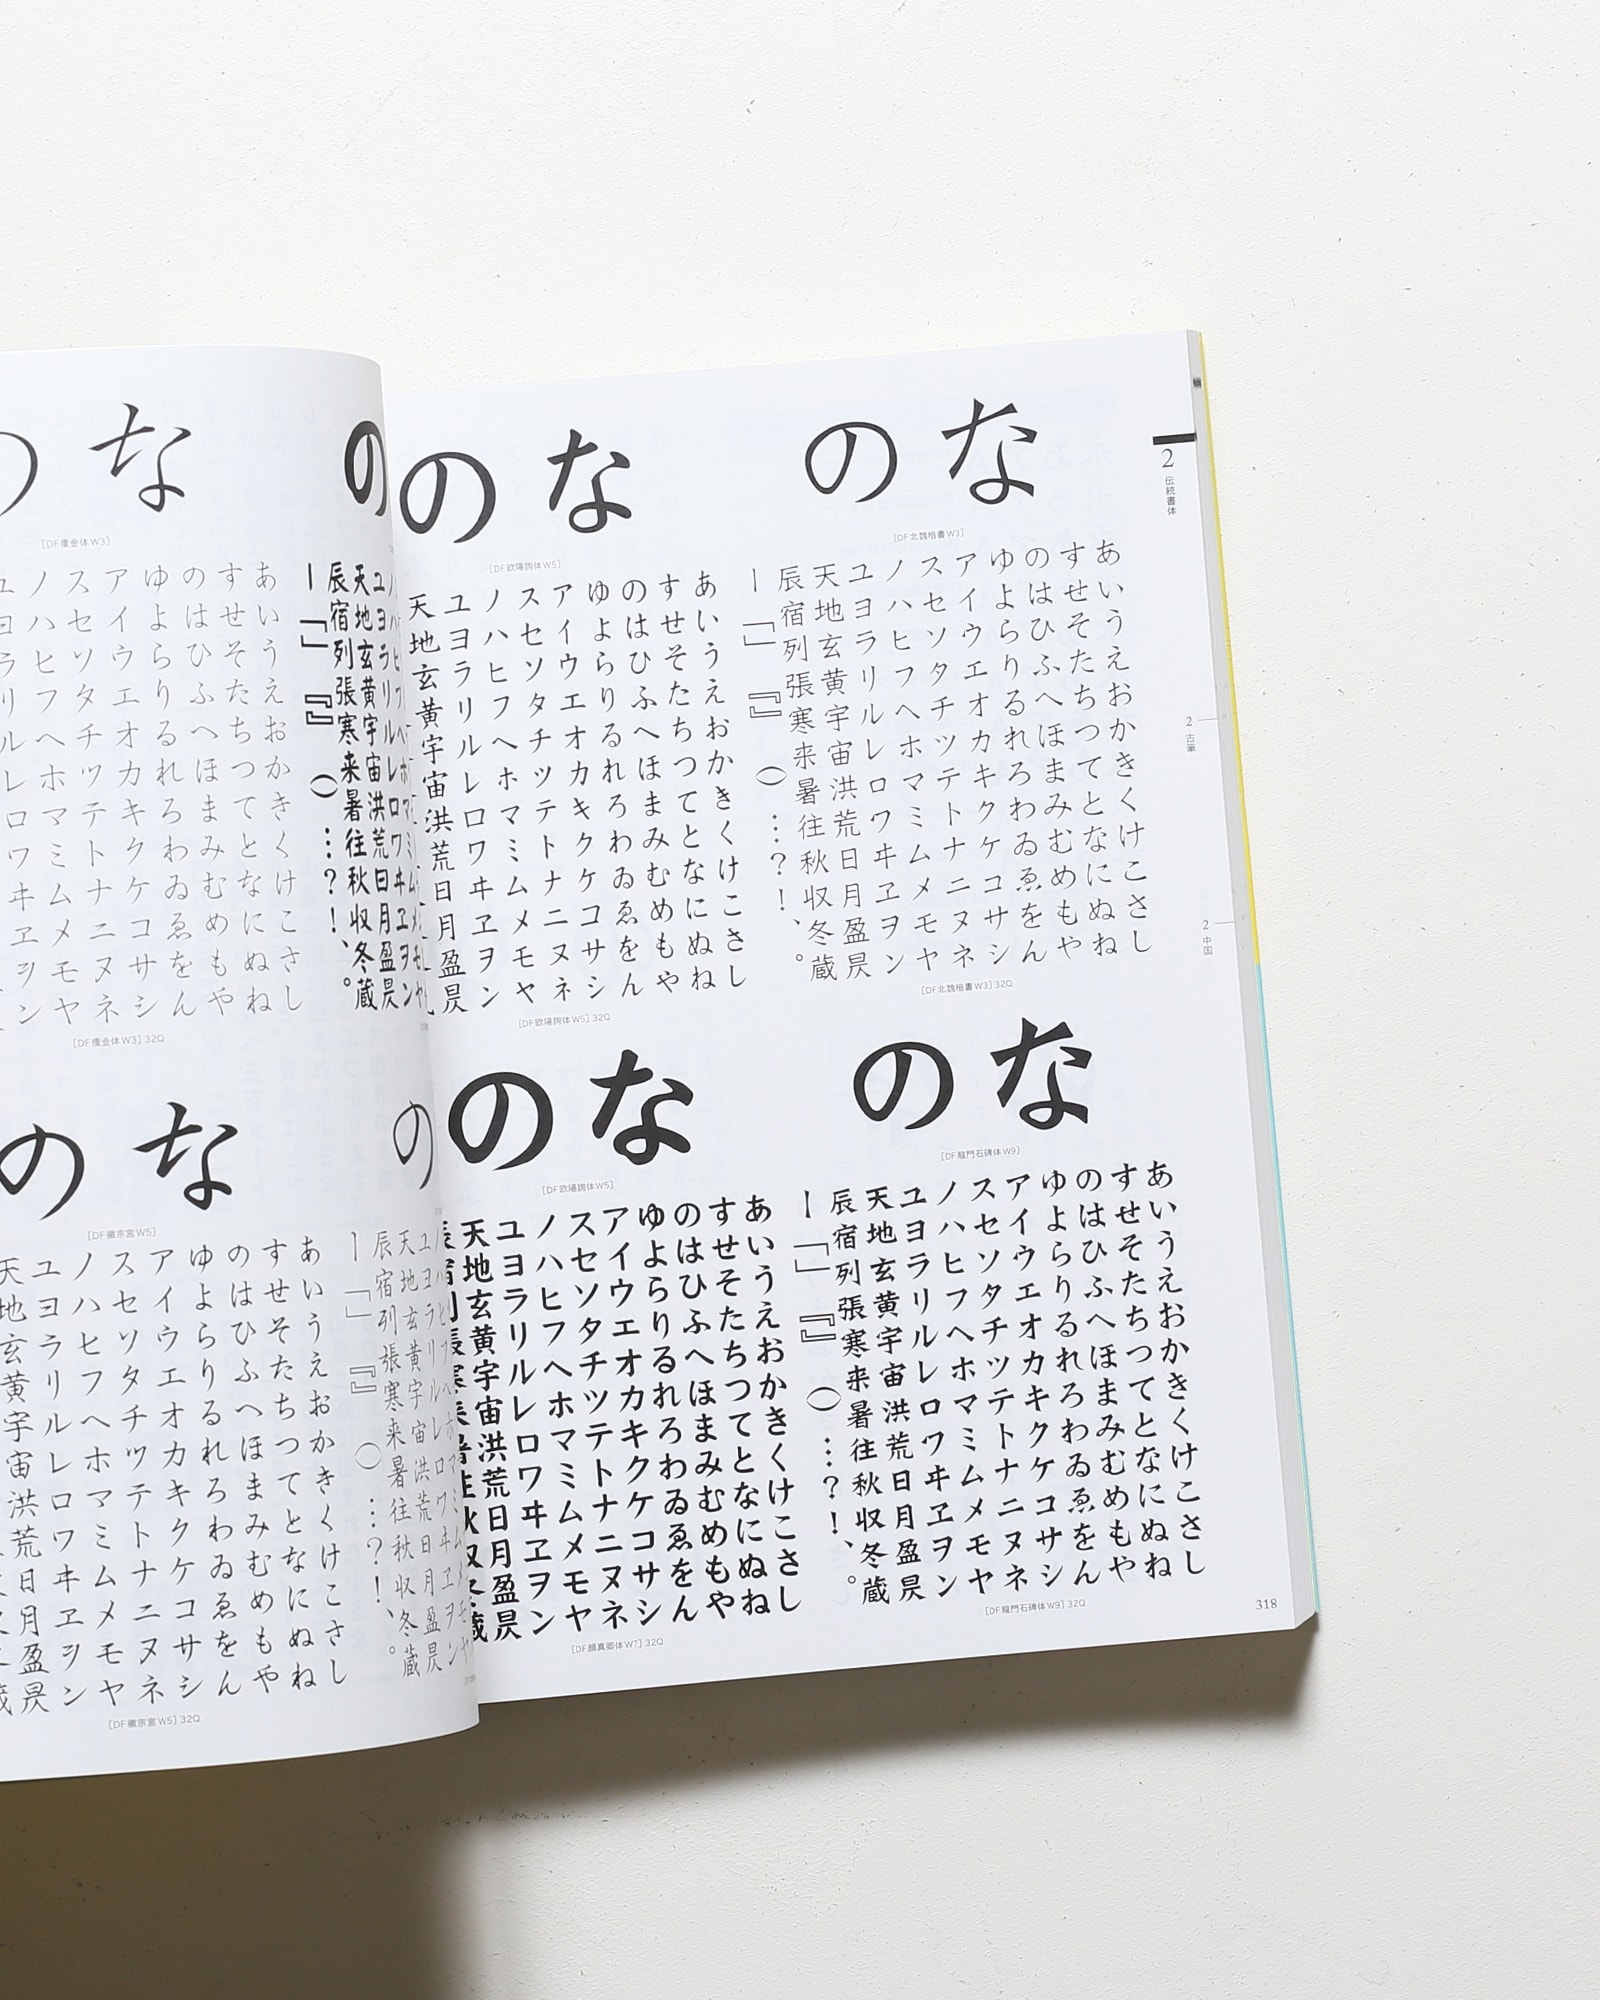 2
伝統書体
2 古筆
2 中国
のな
[DF北魏楷書W3]
あいうえおかきくけこさし
すせそたちつてとなにぬね
のはひふへほまみむめもや
ゆよらりるれろわゐゑをん
アイウエオカキクケコサシ
スセソタチツテトナニヌネ
ノハヒフヘホマミムメモヤ
ユヨラリルレロワヰヱヲン
天地玄黄宇宙洪荒日月盈昃
辰宿列張寒来暑往秋収冬蔵
ー「」『』()…?!、。
[DF北魏楷書W3] 32Q
のな
[DF欧陽詢体W5]
あいうえおかきくけこさし
すせそたちつてとなにぬね
のはひふへほまみむめもや
ゆよらりるれろわゐゑをん
アイウエオカキクケコサシ
スセソタチツテトナニヌネ
ノハヒフヘホマミムメモヤ
ユヨラリルレロワヰヱヲン
天地玄黄宇宙洪荒日月盈昃
[DF欧陽詢体W5] 32Q
のな
[DF龍門石碑体W9]
あいうえおかきくけこさし
すせそたちつてとなにぬね
のはひふへほまみむめもや
ゆよらりるれろわゐゑをん
アイウエオカキクケコサシ
スセソタチツテトナニヌネ
ノハヒフヘホマミムメモヤ
ユヨラリルレロワヰヱヲン
天地玄黄宇宙洪荒日月盈昃
辰宿列張寒来暑往秋収冬蔵
ー「」『』()…?!、。
[DF龍門石碑体W9] 32Q
のな
[DF欧陽詢体W5]
あいうえおかきくけこさし
すせそたちつてとなにぬね
のはひふへほまみむめもや
ゆよらりるれろわゐゑをん
アイウエオカキクケコサシ
スセソタチツテトナニヌネ
ノハヒフヘホマミムメモヤ
ユヨラリルレロワヰヱヲン
天地玄黄宇宙洪荒日月盈昃
[DF顔真卿体W7] 32Q
318
の
ユヨラリルレロワヰヱヲン
天地玄黄宇宙洪荒日月盈昃
辰宿列張寒来暑往秋収冬蔵
ー「」『』()…?!、。
のな
[DF痩金体W3]
あいうえおかきくけこさし
すせそたちつてとなにぬね
のはひふへほまみむめもや
ゆよらりるれろわゐゑをん
アイウエオカキクケコサシ
スセソタチツテトナニヌネ
ノハヒフヘホマミムメモヤ
ユヨラリルレロワヰヱヲン
[DF痩金体W3] 32Q
の
ユヨラリルレロワヰヱヲン
天地玄黄宇宙洪荒日月盈昃
辰宿列張寒来暑往秋収冬蔵
ー「」『』()…?!、。
のな
[DF徽宗宮W5]
あいうえおかきくけこさし
すせそたちつてとなにぬね
のはひふへほまみむめもや
ゆよらりるれろわゐゑをん
アイウエオカキクケコサシ
スセソタチツテトナニヌネ
ノハヒフヘホマミムメモヤ
ユヨラリルレロワヰヱヲン
天地玄黄宇宙洪荒日月盈昃
[DF徽宗宮W5] 32Q